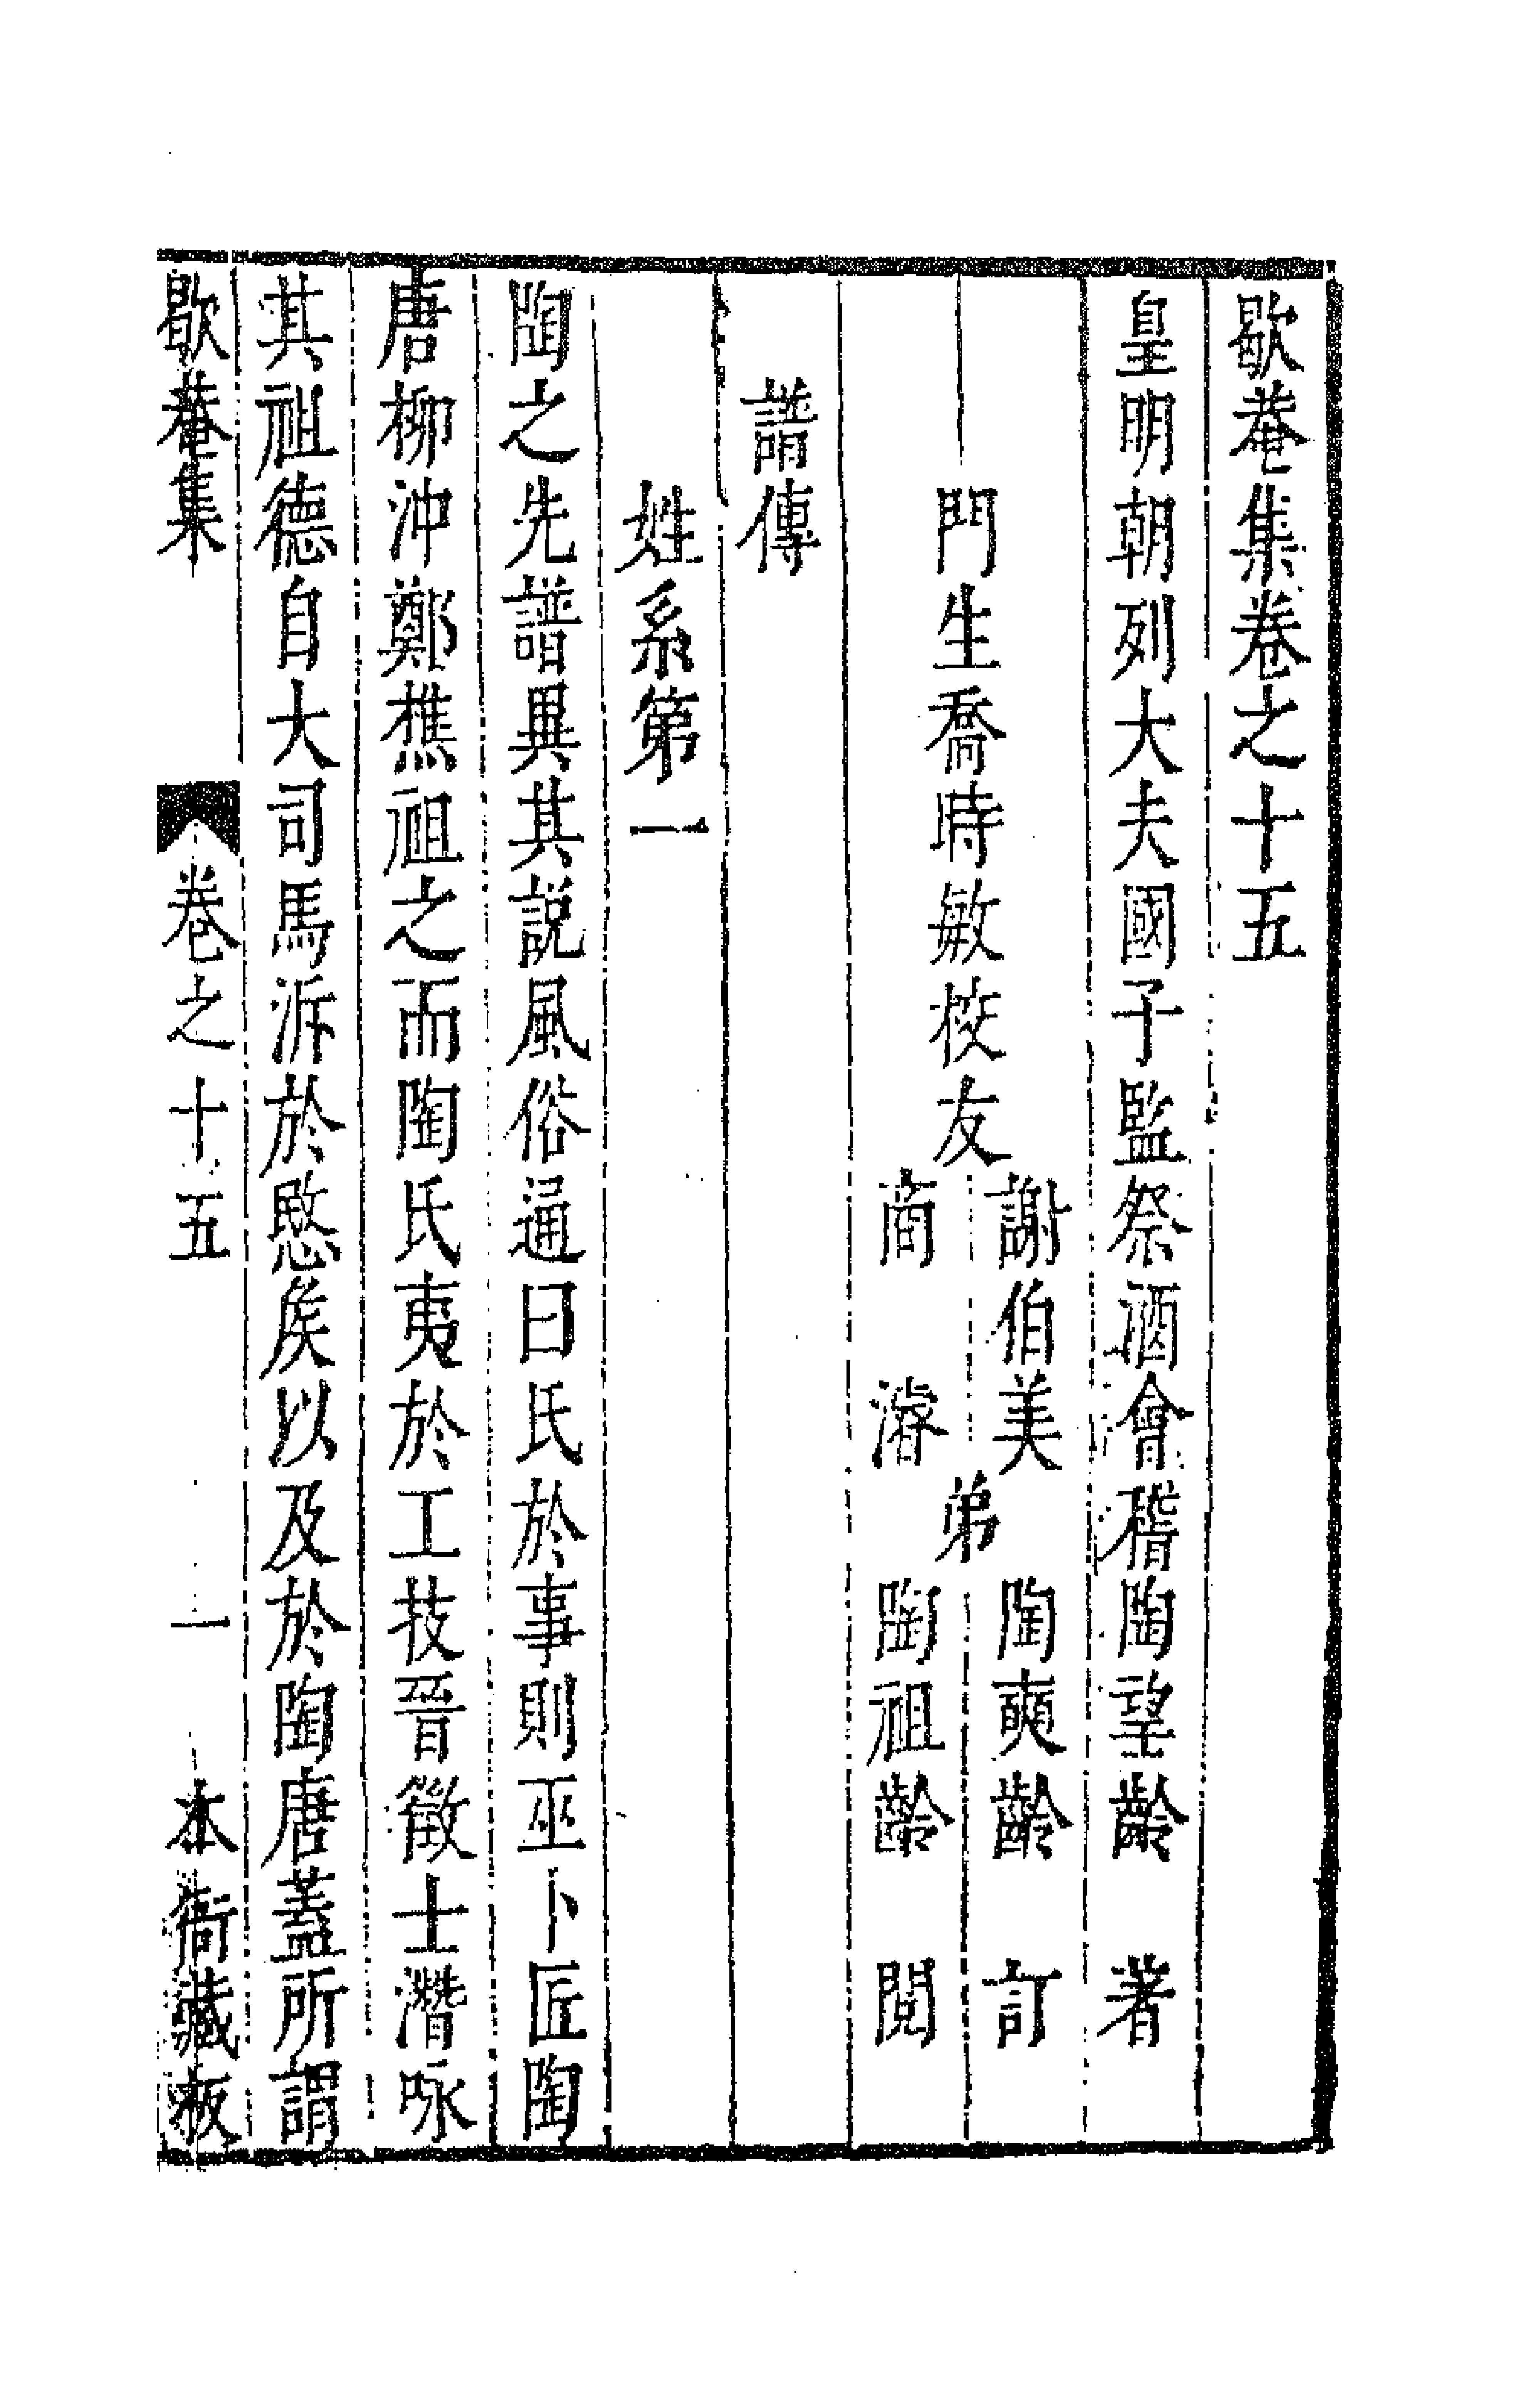 歇菴集卷之十五
皇明朝列大夫國子監祭酒會稽陶望齡　著
門生喬時敏校友
謝伯美
商　濬
弟
陶奭齡　訂
陶祖齡　閱
譜傳
姓系第一
陶之先譜異其說風俗通曰氏於事則巫卜匠陶
唐柳沖鄭樵祖之而陶氏夷於工技晉徵士潛咏
其祖德自大司馬泝於愍矦以及於陶唐蓋所謂
歇菴集　卷之十五　一　本衙藏板